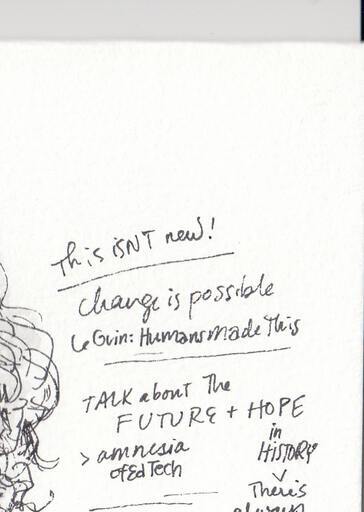 This iSNT new!
Change is possible
LeGuin: Humans made This
TALK about The
FUTURE + HOPE
in
HISTORY
> amnesia
of Ed Tech
There's
always